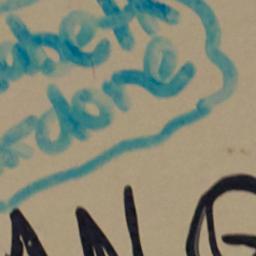 abeth
ardone
ANG